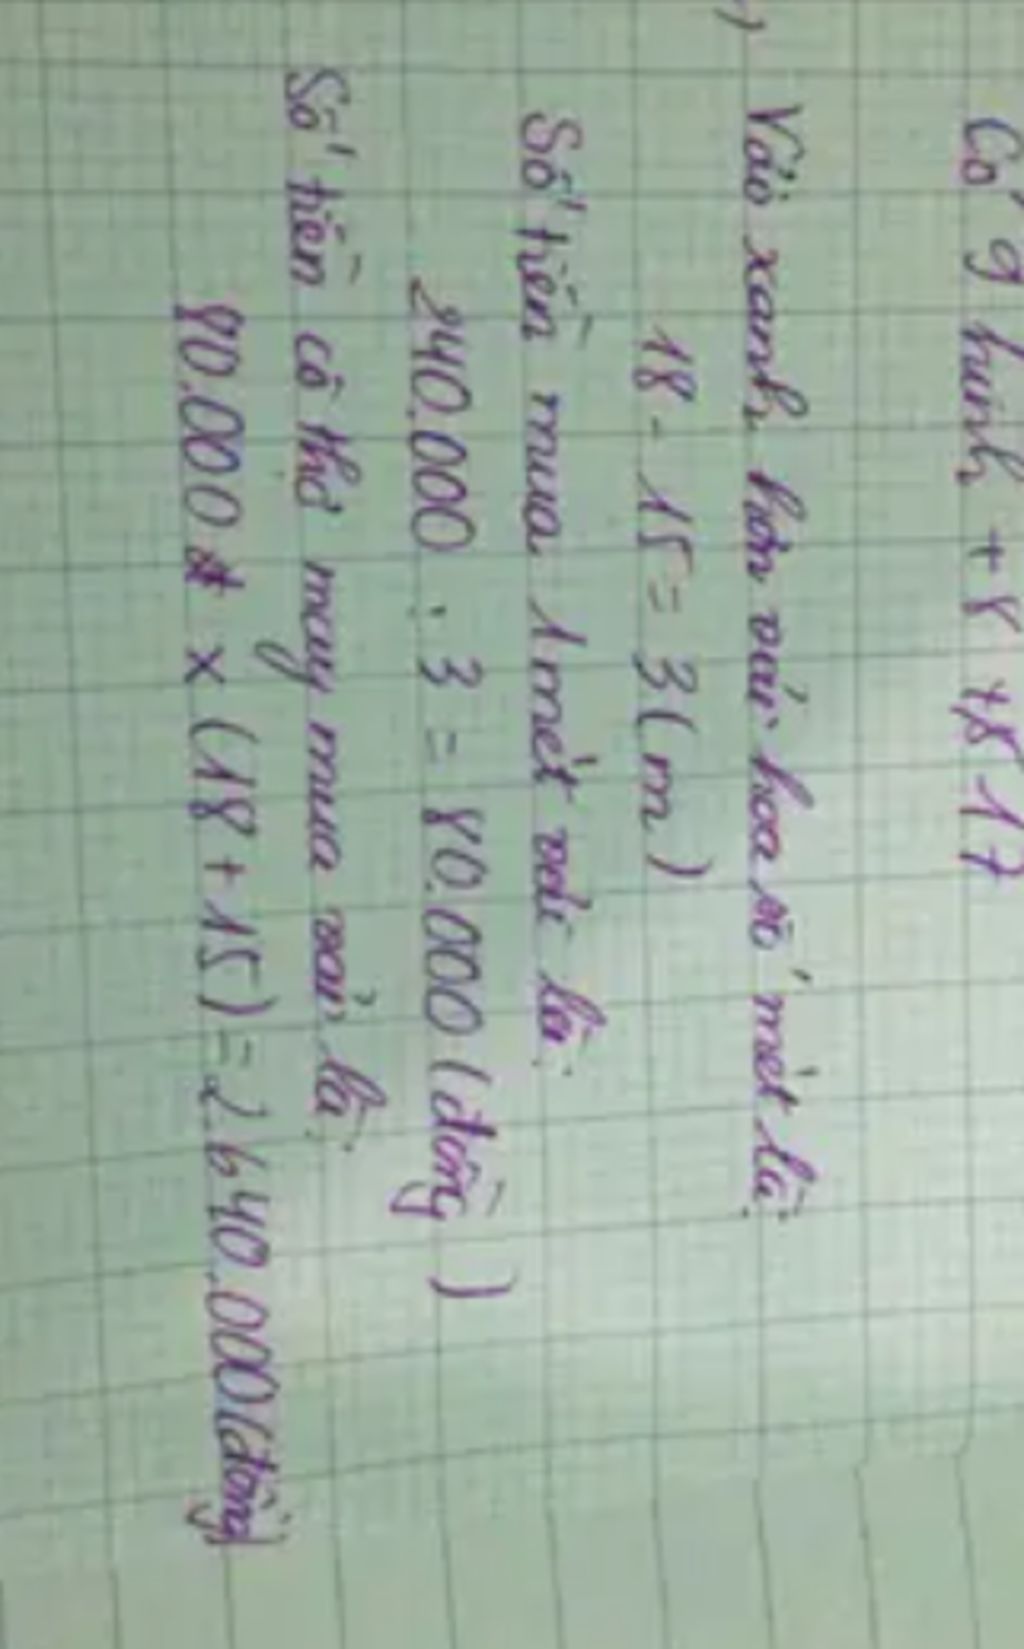 Có 9 hình + 8 + 8 17
)
Vải xanh hơn vải hoa số mét là:
18 - 15 = 3 (m)
Số tiền mua 1 mét vải là:
240.000 : 3 = 80.000 (đồng)
Số tiền cô thợ may mua vải là:
80.000 x (18 + 15) = 2.640.000 (đồng)